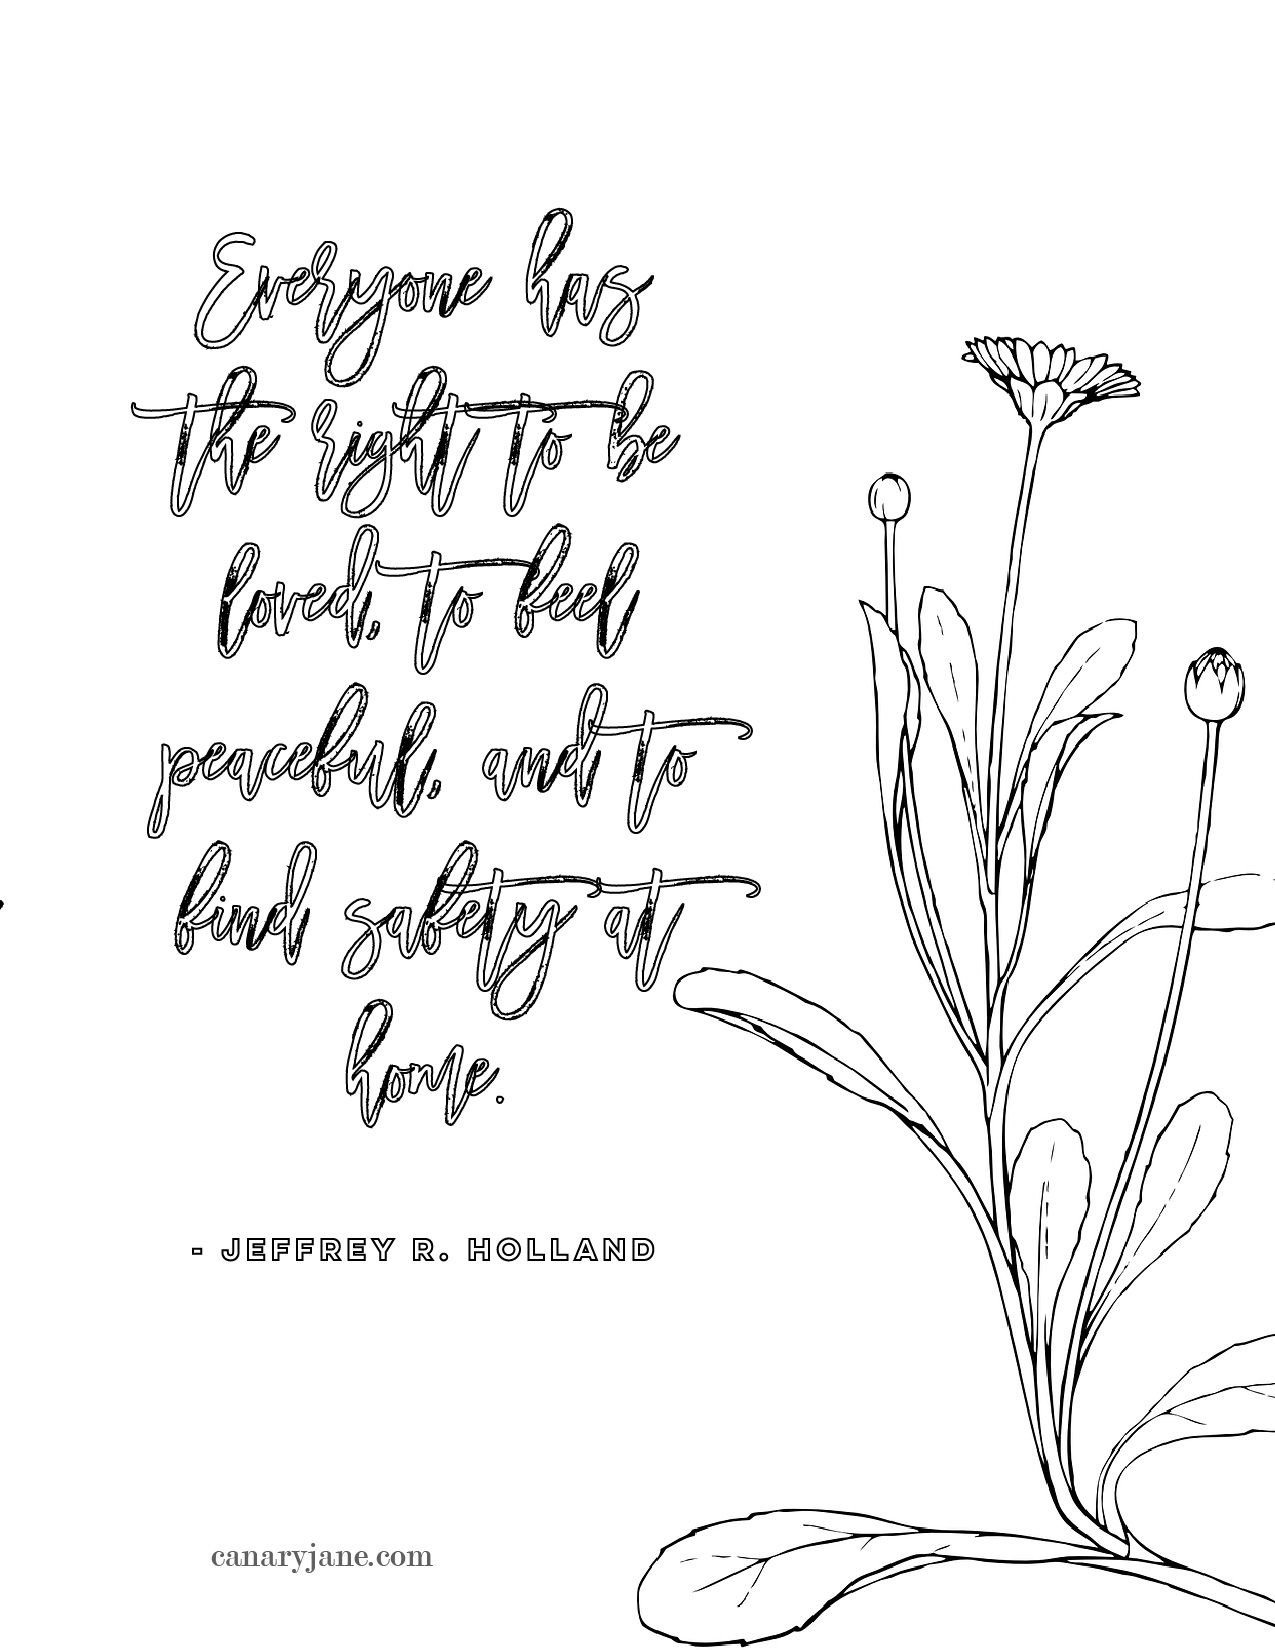 Everyone has
the right to be
loved, to feel
peaceful, and to
find safety at
home.
- JEFFREY R. HOLLAND
canaryjane.com